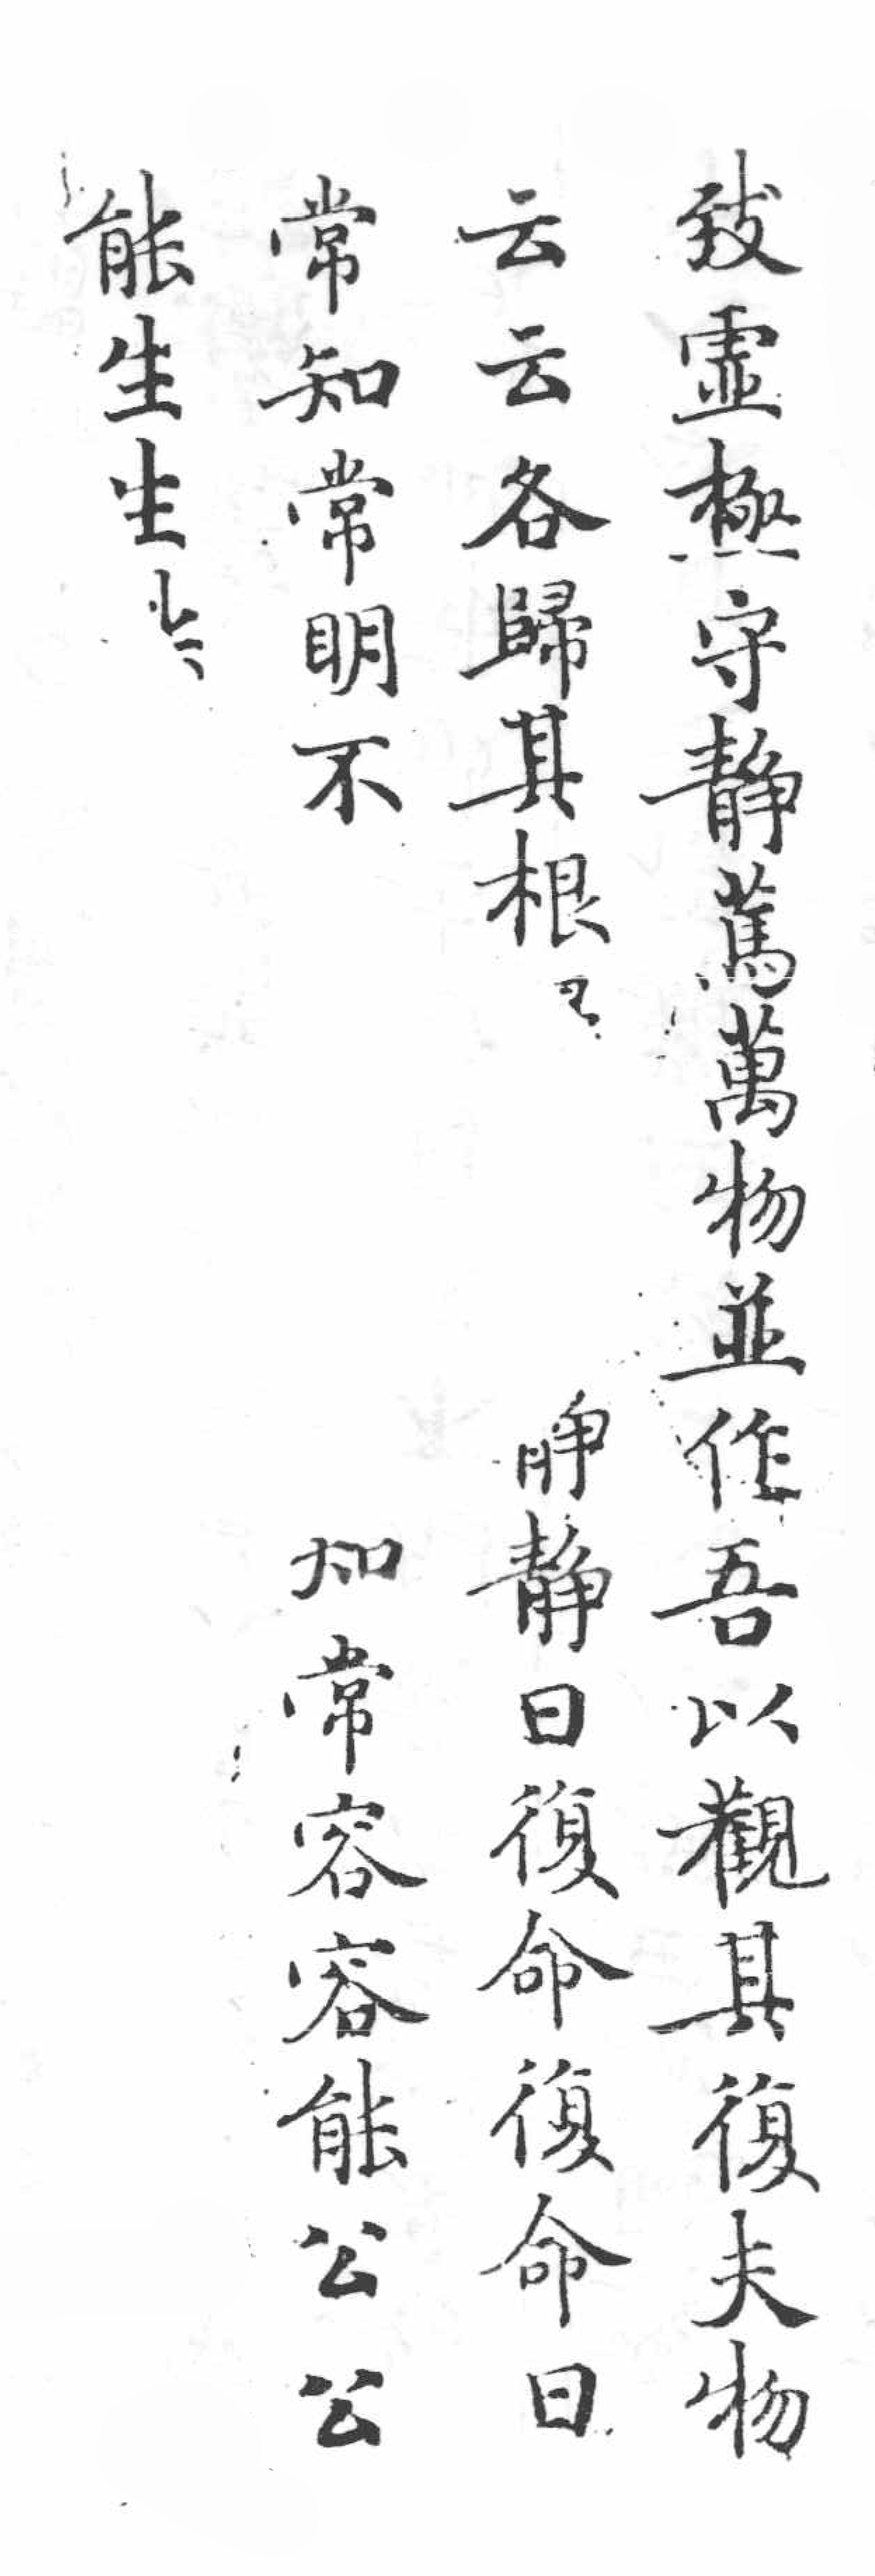 致虛極守靜萬萬物並作吾以觀其復夫物
云云各歸其根 靜曰復命復命曰
常知常明不 知常容容能公公
能生生